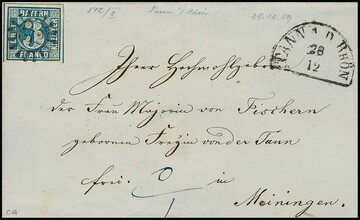 512/2
Tann a/Rhön
28.12.59
BAYERN
FRANCO
TANN A. D. RHÖN
28
12
Ihrer Hochwohlgeboren
der Frau Majorin von
Fischern
gebornen Freyin von der Tann
frei. in
Meiningen.